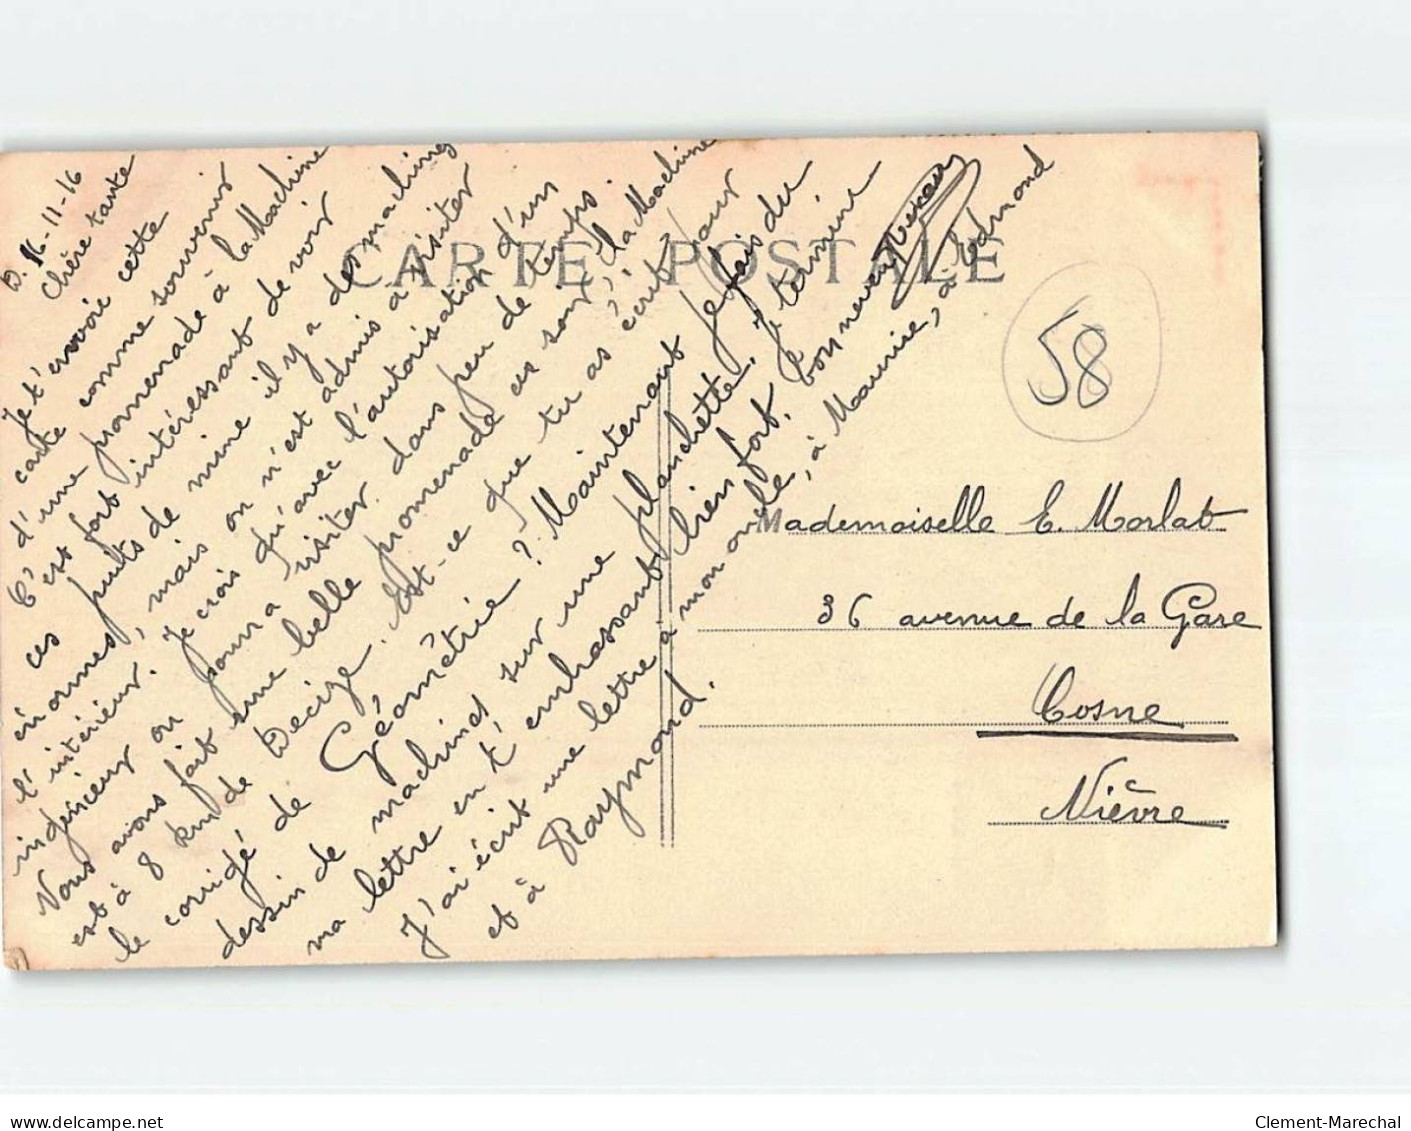 D. 16-11-16
Chère tante
Je t'envoie cette
carte comme souvenir
d'une promenade à la Machine
C'est fort intéressant de voir
ces puits de mine il y a des machines
énormes, mais on n'est admis à visiter
l'intérieur. Je crois qu'avec l'autorisation d'un
ingénieur on pourra visiter dans peu de temps.
Nous avons fait une belle promenade ce soir, la Machine
est à 8 km de Decize. Est-ce que tu as écrit pour
le corrigé de Géométrie ? Maintenant je fais du
dessin de machines sur une planchette. Je termine
ma lettre en t'embrassant bien fort. ton neveu
J'ai écrit une lettre à mon oncle, à Maurice, à Edmond
et à Raymond.
CARTE POSTALE
58
Mademoiselle E. Morlat
36 avenue de la Gare
Cosne
Nièvre
delcampe.net
Clement-Marechal